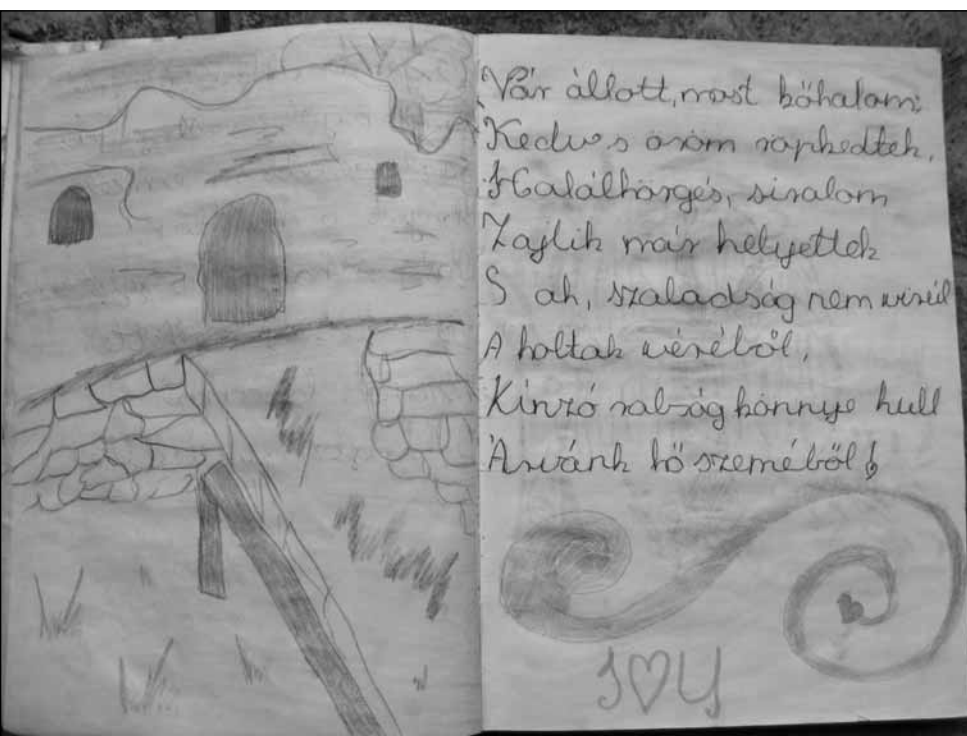 Vár állott, most kőhalom;
Kedv s öröm röpkedtek,
Halálhörgés, siralom
Zajlik már helyettek
S ah, szaladság nem virúl
A holtak véréből,
Kínzó rabság könnye hull
Árvánk hő szeméből!
I♡U